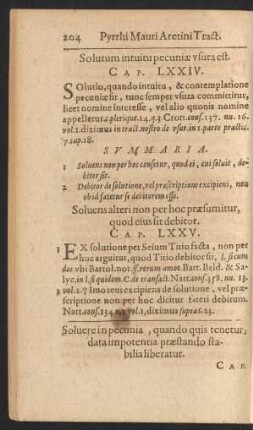 204 Pyrrhi Mauri Aretini Tract.
Solutum intuitu pecuniæ vsura est.
CAP. LXXIV.
SOlutio, quando intuitu, & contemplatione
pecuniæ fit, tunc semper vsura committitur,
licet nomine interesse, vel alio quouis nomine
appelletur. c. plerique. 14. q.3. Crott. cons. 137. nu. 16.
vol. 1. diximus in tract. nostro de vsur. in 1. parte practic.
7. cap. 18.
SVMMARIA.
1 Soluens non per hoc censetur, quod ei, cui soluit, de-
bitor sit.
2 Debitor de solutione, vel præscriptione excipiens, non
ob id fatetur se debitorem esse.
Soluens alteri non per hoc præsumitur,
quod eius sit debitor.
CAP. LXXV.
1 EX solutione per Seium Titio facta, non per
hoc arguitur, quod Titio debitor sit, l. si cum
das vbi Bartol. not. ff. rerum amot. Batt. Bald. & Sa-
lyc. in l. si quidem. C. de transact. Natt. cons. 358. nu. 13.
2 vol. 2. † Imo reus excipiens de solutione, vel præ-
scriptione non per hoc dicitur fateri debitum.
Natt. cons. 234. vol. 1, diximus supra c. 23.
Soluere in pecunia, quando quis tenetur,
data impotentia præstando sta-
bilia liberatur.
CAP.